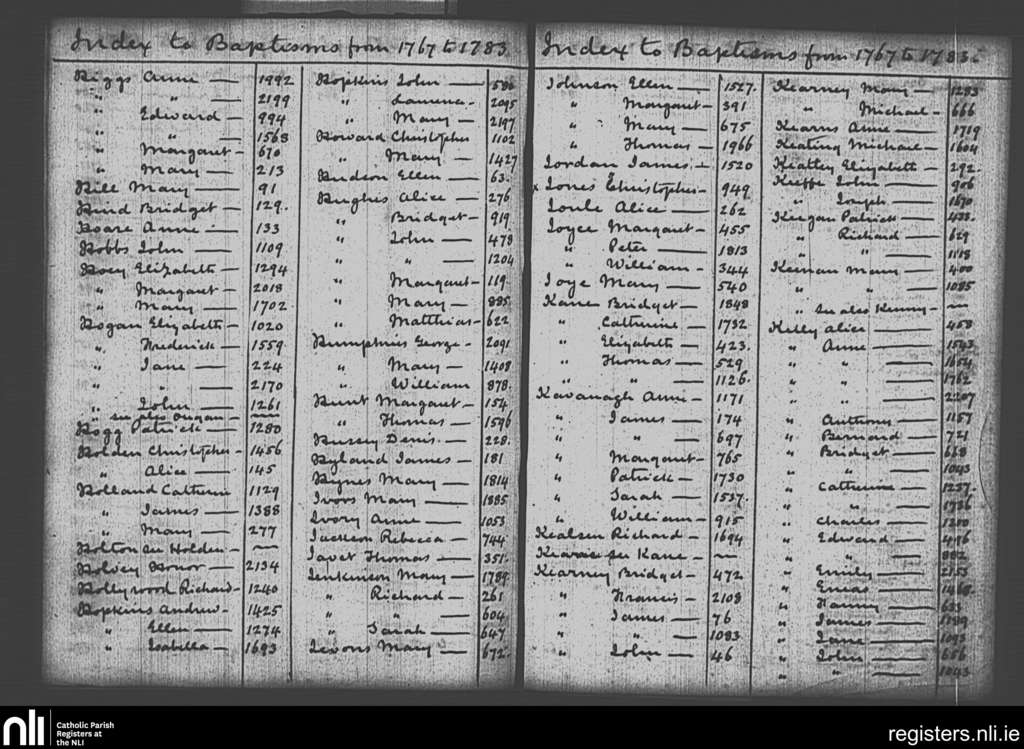 Index to Baptisms from 1767 to 1783
Higgs Anne — 1992
" " — 2199
" Edward — 994
" " — 1568
" Margaret — 670
" Mary — 213
Hill Mary — 91
Hind Bridget — 129.
Hoare Anne — 133
Hobbs John — 1109
Hoey Elizabeth — 1294
" Margaret — 2018
" Mary — 1702
Hogan Elizabeth — 1020
" Frederick — 1559
" Jane — 224
" " — 2170
" John — 1261
" see also Ougan —
Hogg Patrick — 1280
Holden Christopher — 1456
" Alice — 145
Holland Catherine 1129
" James — 1388
" Mary — 277
Holton see Holden — —
Holvey Honor — 2134
Hollywood Richard — 1240
Hopkins Andrew — 1425
" Ellen — 1274
" Isabella — 1693
Hopkins John — 586
" Laurence - 2095
" Mary — 2197
Howard Christopher 1102
" Mary — 1427
Hudson Ellen — 63.
Hughes Alice — 276
" Bridget — 919
" John — 478
" " — 1204
" Margaret — 119
" Mary — 885
" Matthias — 622
Humphries George - 2091
" Mary — 1408
" William 878.
Hunt Margaret — 154
" Thomas — 1596
Hussey Denis. — 228
Hyland James — 181
Hynes Mary — 1814
Ivors Mary — 1885
Ivory Anne — 1053
Jackson Rebecca — 744
Javet Thomas — 351.
Jenkinson Mary — 1789
" Richard — 261
" " — 604
" Sarah — 647
Jevons Mary — 672.
Index to Baptisms from 1767 to 1783.
Johnson Ellen — 1527.
" Margaret — 391
" Mary — 675
" Thomas — 1966
Jordan James — 1520
x Jones Christopher — 949
Joule Alice — 262
Joyce Margaret — 455
" Peter — 1813
" William — 344
Joye Mary — 540
Kane Bridget — 1848
" Catherine — 1732
" Elizabeth — 423.
" Thomas — 529
" " — 1126.
Kavanagh Anne — 1171
" James — 174
" " — 697
" Margaret — 765
" Patrick — 1730
" Sarah — 1537.
" William — 915
Kealsen Richard — 1694
see Kane — —
Kearney Bridget — 472
" Francis — 2108
" James — 76
" " — 1083
" John — 46
Kearney Mary — 1283
" Michael — 666
Kearns Anne — 1719
Keating Michael — 1604
Keatley Elizabeth — 292.
Keeffe John — 906
" Joseph — 1670
Keegan Patrick — 433.
" Richard — 629
" " — 1118
Keenan Mary — 400
" " — 1085
" see also Kenny — —
Kelly Alice — 458
" Anne — 1543
" " — 1654
" " — 1762
" " — 2207
" Anthony — 1157
" Bernard — 721
" Bridget — 668
" " — 1043
" Catherine — 1237.
" " — 1736
" Charles — 1200
" Edward — 496
" " — 882
" Emily — 2153
" Eneas — 1468.
" Hanny — 633
" James — 1199
" Jane — 1093
" John — 656
" " — 1043
nli
Catholic Parish
Registers at
the NLI
registers.nli.ie